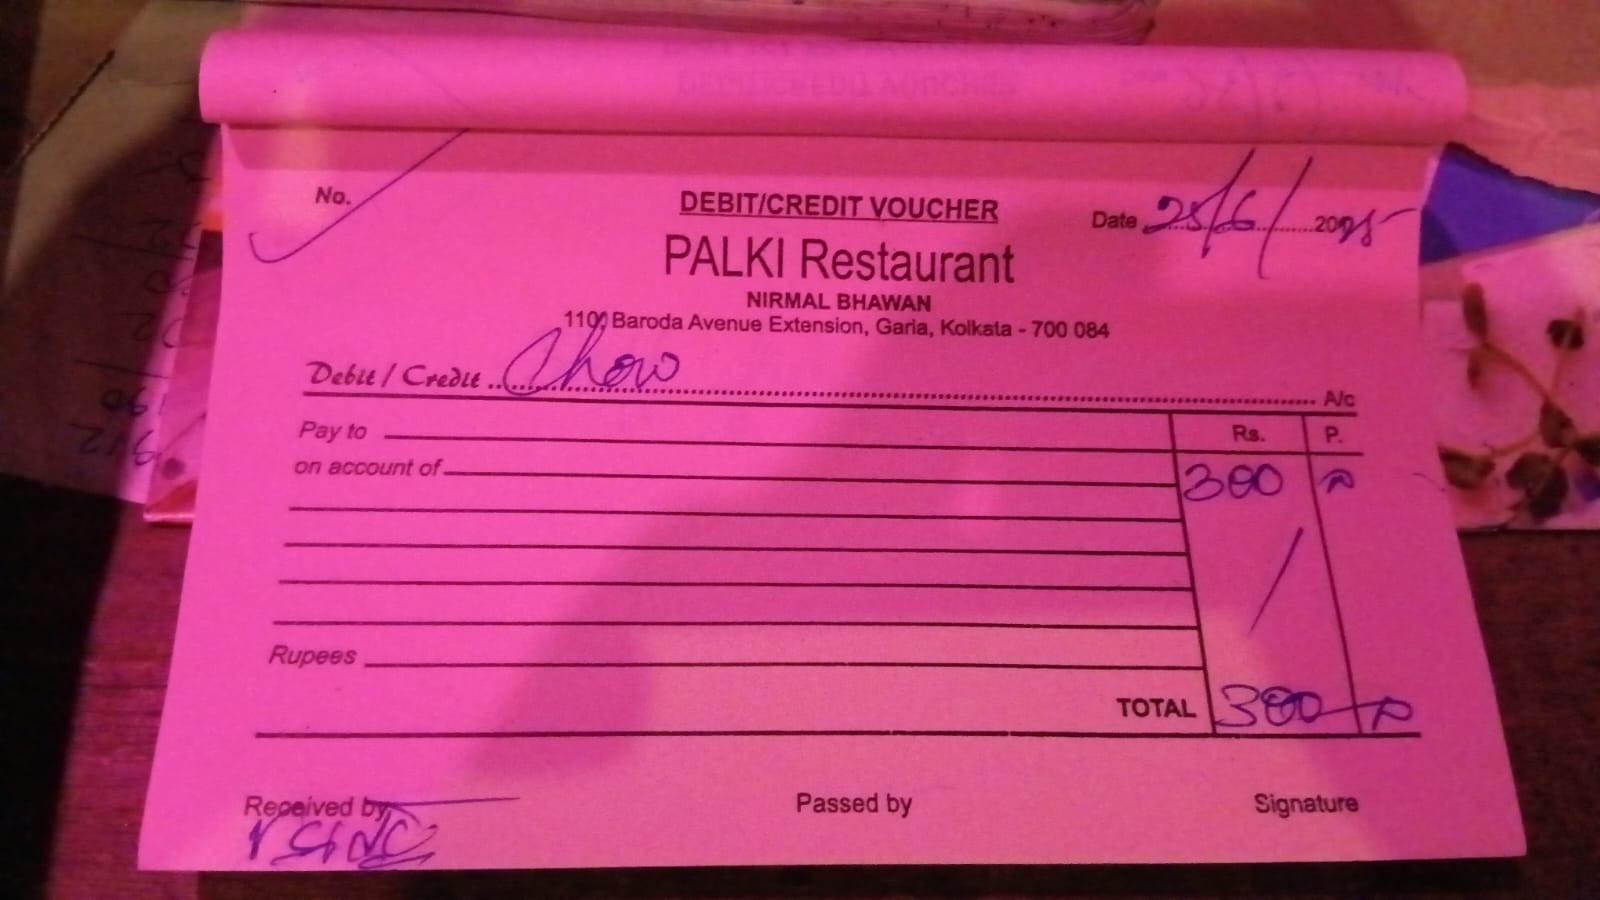 No.
DEBIT/CREDIT VOUCHER
Date 25/6/2025
PALKI Restaurant
NIRMAL BHAWAN
1100 Baroda Avenue Extension, Garia, Kolkata - 700 084
Debit / Credit Chow A/c
Pay to Rs. P.
on account of 300
Rupees
TOTAL 300
Received by Passed by Signature